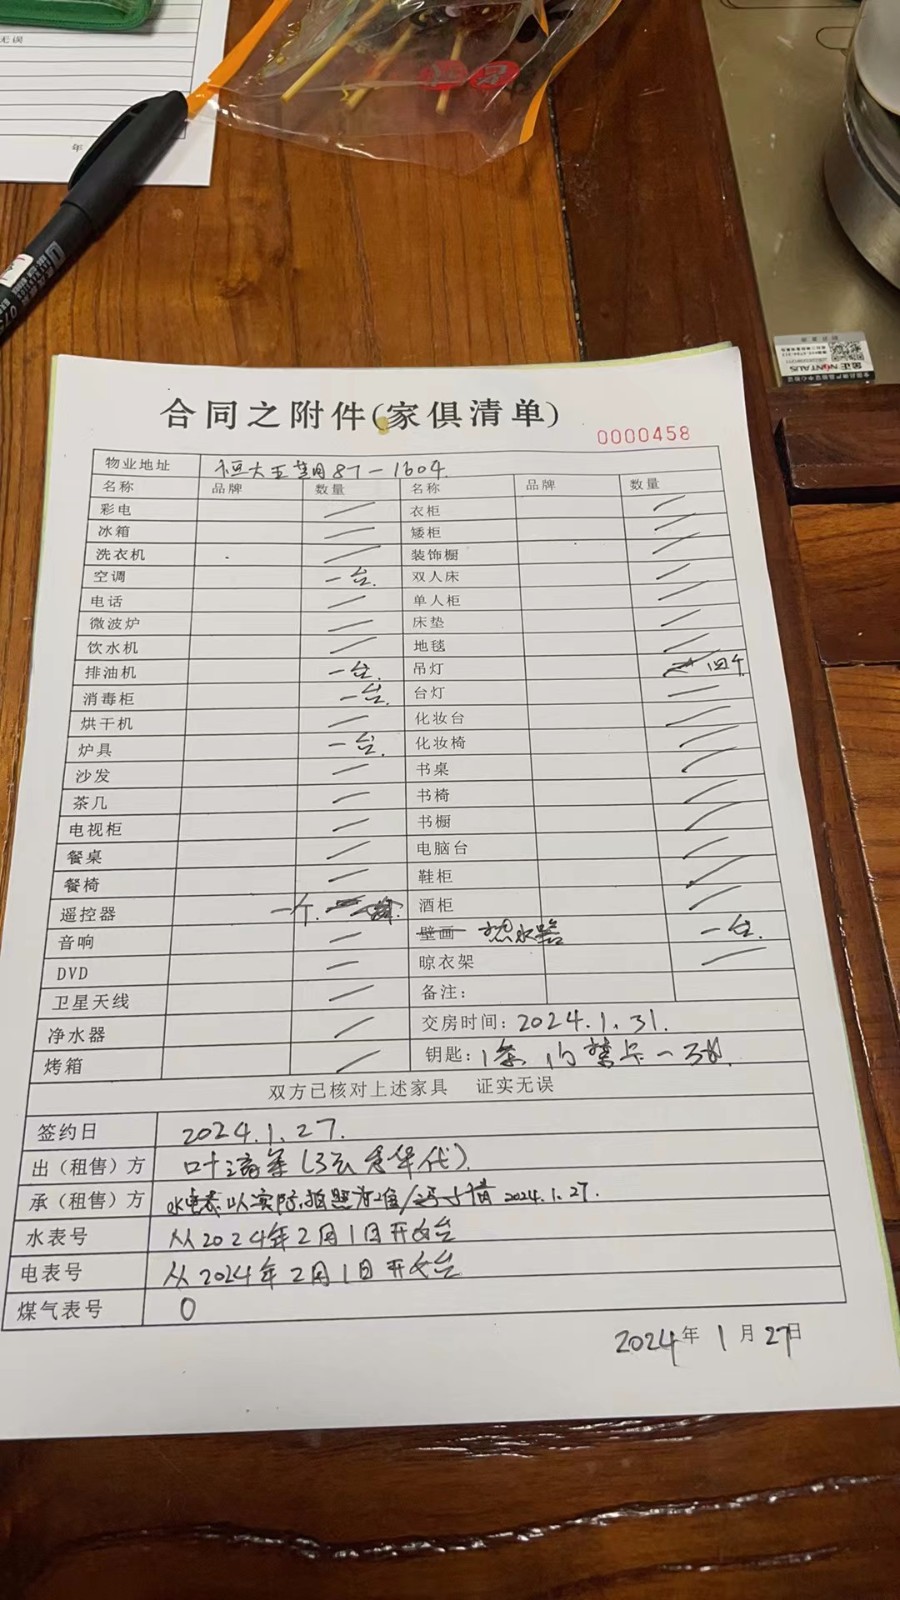 无误
年
合同之附件(家俱清单)
0000458
物业地址 恒大 87-1604
名称 品牌 数量 名称 品牌 数量
彩电 衣柜
冰箱 矮柜
洗衣机 装饰橱
空调 一台. 双人床
电话 单人柜
微波炉 床垫
饮水机 地毯
排油机 一台. 吊灯 四个
消毒柜 一台. 台灯
烘干机 化妆台
炉具 一台. 化妆椅
沙发 书桌
茶几 书椅
电视柜 书橱
餐桌 电脑台
餐椅 鞋柜
遥控器 一个. 酒柜
音响 壁画 热水器 一台.
DVD 晾衣架
卫星天线 备注:
净水器 交房时间: 2024.1.31.
烤箱 钥匙: 1条 门禁卡一张
双方已核对上述家具 证实无误
签约日 2024.1.27.
出（租售）方 叶 代).
承（租售）方 水电表以实际拍照为准 2024.1.27.
水表号 从2024年2月1日开始
电表号 从2024年2月1日开始
煤气表号 0
2024年 1月 27日